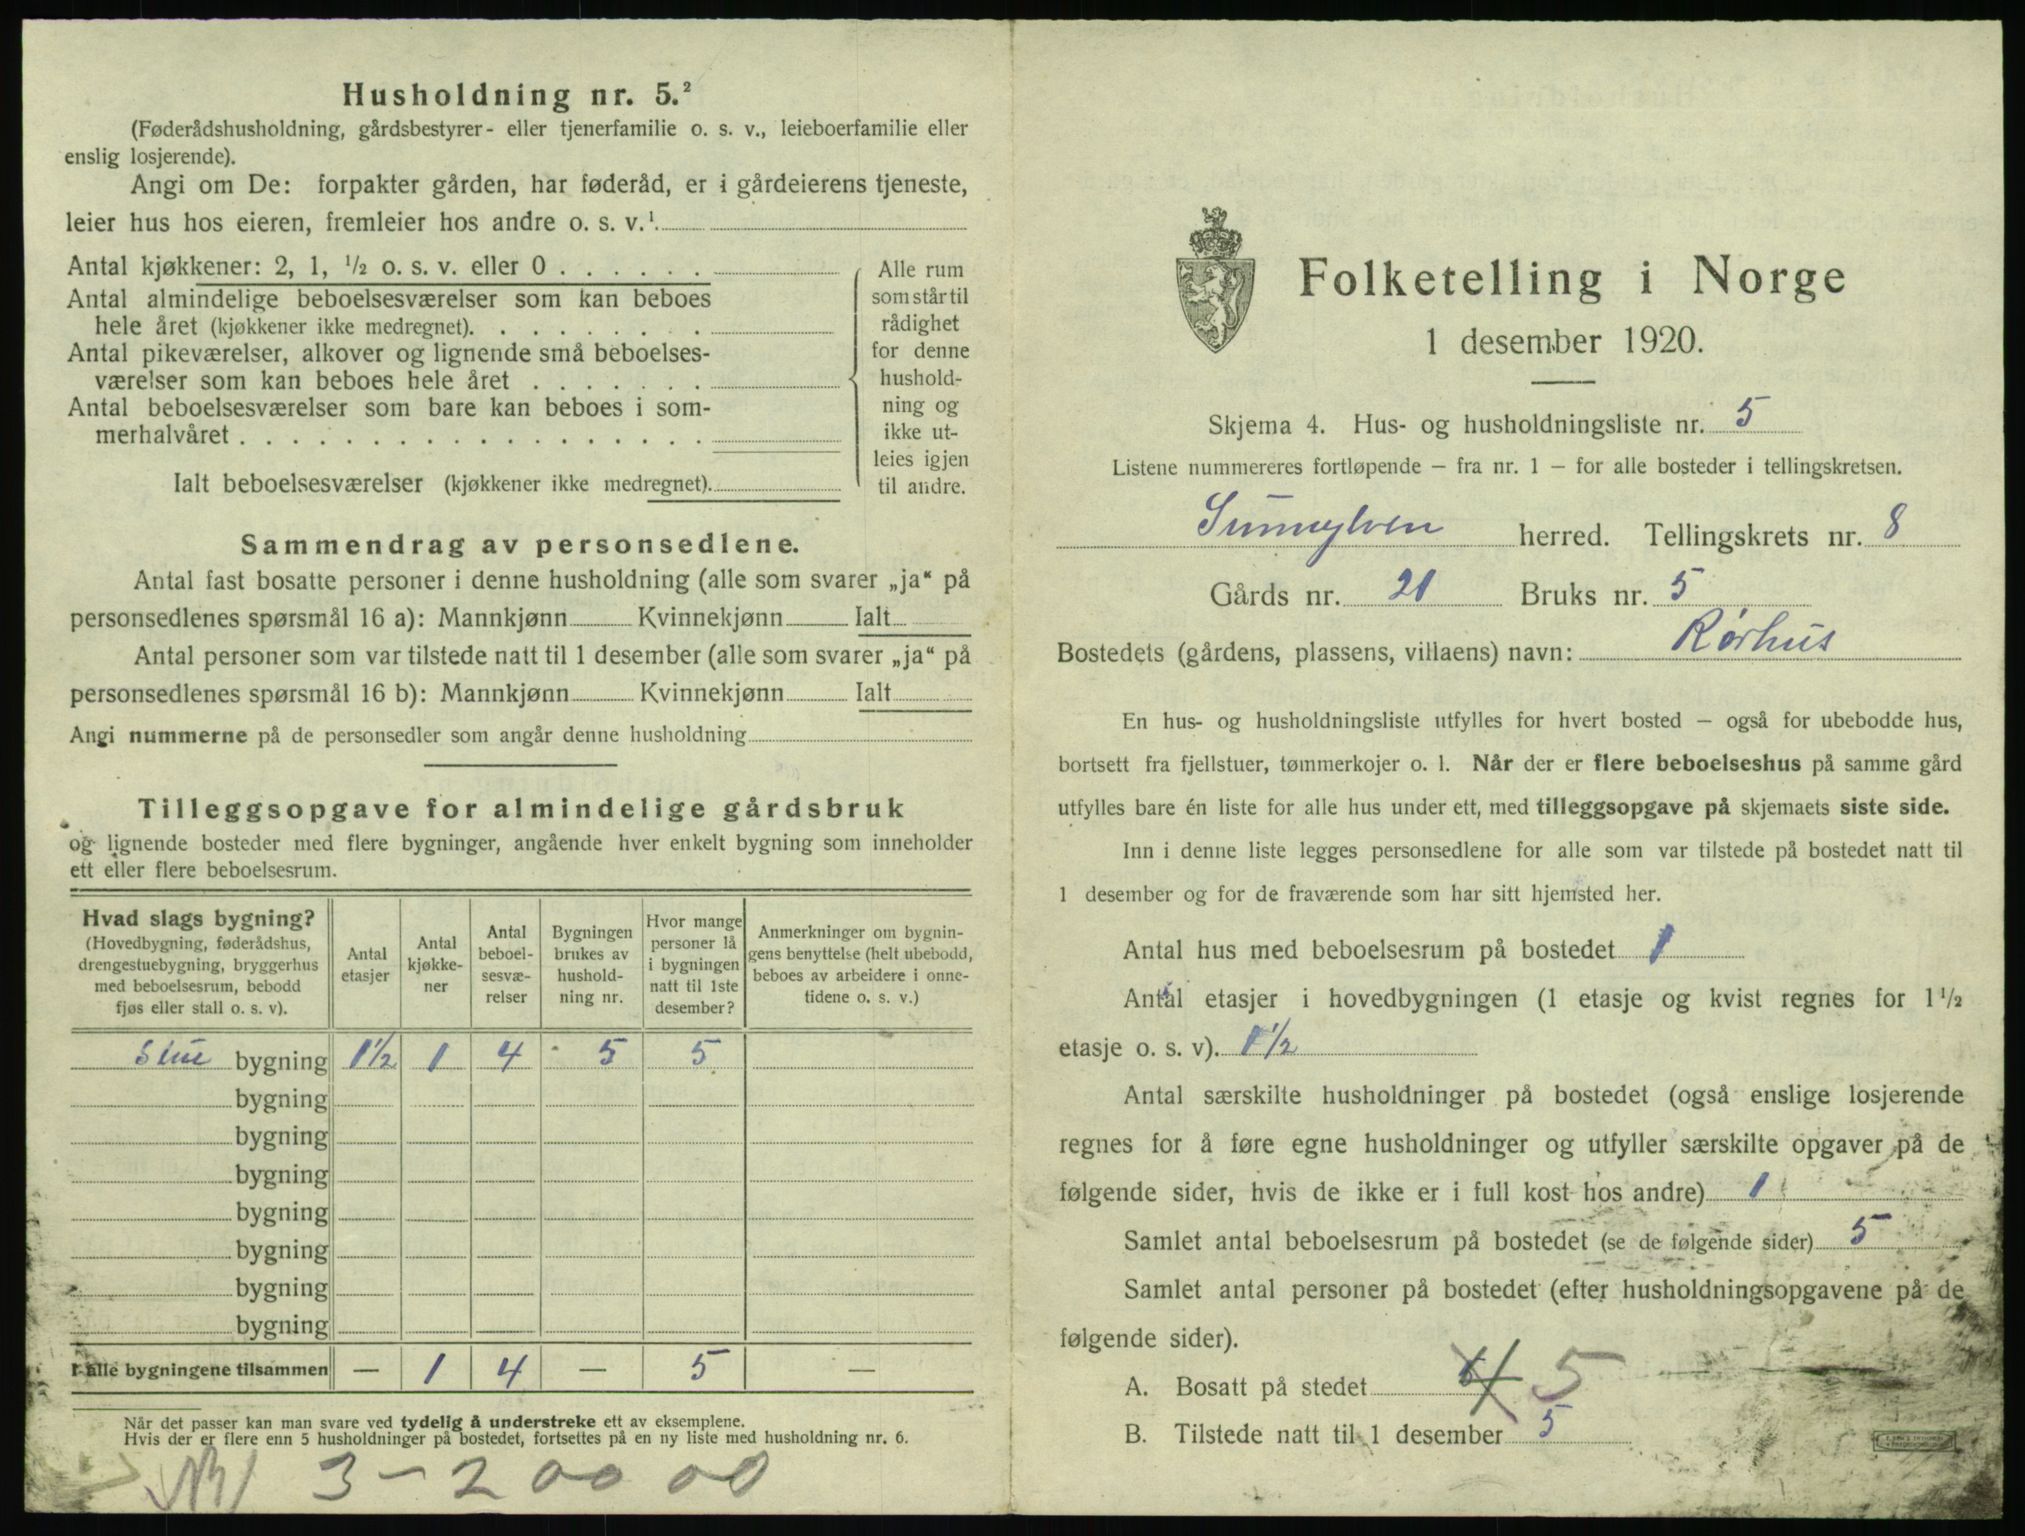 Husholdning nr. 5.²
(Føderådshusholdning, gårdsbestyrer- eller tjenerfamilie o. s. v., leieboerfamilie eller
enslig losjerende).
Angi om De: forpakter gården, har føderåd, er i gårdeierens tjeneste,
leier hus hos eieren, fremleier hos andre o. s. v.¹
Antal kjøkkener: 2, 1, ½ o. s. v. eller 0
Antal almindelige beboelsesværelser som kan beboes
hele året (kjøkkener ikke medregnet).
Antal pikeværelser, alkover og lignende små beboelses-
værelser som kan beboes hele året
Antal beboelsesværelser som bare kan beboes i som-
merhalvåret
Ialt beboelsesværelser (kjøkkener ikke medregnet).
Alle rum
som står til
rådighet
for denne
hushold-
ning og
ikke ut-
leies igjen
til andre.
Sammendrag av personsedlene.
Antal fast bosatte personer i denne husholdning (alle som svarer „ja“ på
personsedlenes spørsmål 16 a): Mannkjønn Kvinnekjønn Ialt
Antal personer som var tilstede natt til 1 desember (alle som svarer „ja“ på
personsedlenes spørsmål 16 b): Mannkjønn Kvinnekjønn Ialt
Angi nummerne på de personsedler som angår denne husholdning
Tilleggsopgave for almindelige gårdsbruk
og lignende bosteder med flere bygninger, angående hver enkelt bygning som inneholder
ett eller flere beboelsesrum.
Hvad slags bygning?
(Hovedbygning, føderådshus,
drengestuebygning, bryggerhus
med beboelsesrum, bebodd
fjøs eller stall o. s. v).
Antal
etasjer
Antal
kjøkke-
ner
Antal
beboel-
sesvæ-
relser
Bygningen
brukes av
hushold-
ning nr.
Hvor mange
personer lå
i bygningen
natt til 1ste
desember?
Anmerkninger om bygnin-
gens benyttelse (helt ubebodd,
beboes av arbeidere i onne-
tidene o. s. v.)
Stue bygning 1½ 1 4 5 5
bygning
bygning
bygning
bygning
bygning
bygning
bygning
I alle bygningene tilsammen — 1 4 — 5 —
Når det passer kan man svare ved tydelig å understreke ett av eksemplene.
Hvis der er flere enn 5 husholdninger på bostedet, fortsettes på en ny liste med husholdning nr. 6.
3 - 2 00 00
Folketelling i Norge
1 desember 1920.
Skjema 4. Hus- og husholdningsliste nr. 5
Listene nummereres fortløpende — fra nr. 1 — for alle bosteder i tellingskretsen.
Sunnylven herred. Tellingskrets nr. 8
Gårds nr. 21 Bruks nr. 5
Bostedets (gårdens, plassens, villaens) navn: Rørhus
En hus- og husholdningsliste utfylles for hvert bosted — også for ubebodde hus,
bortsett fra fjellstuer, tømmerkojer o. l. Når der er flere beboelseshus på samme gård
utfylles bare én liste for alle hus under ett, med tilleggsopgave på skjemaets siste side.
Inn i denne liste legges personsedlene for alle som var tilstede på bostedet natt til
1 desember og for de fraværende som har sitt hjemsted her.
Antal hus med beboelsesrum på bostedet 1
Antal etasjer i hovedbygningen (1 etasje og kvist regnes for 1½
etasje o. s. v). 1½
Antal særskilte husholdninger på bostedet (også enslige losjerende
regnes for å føre egne husholdninger og utfyller særskilte opgaver på de
følgende sider, hvis de ikke er i full kost hos andre) 1
Samlet antal beboelsesrum på bostedet (se de følgende sider) 5
Samlet antal personer på bostedet (efter husholdningsopgavene på de
følgende sider).
A. Bosatt på stedet 5
B. Tilstede natt til 1 desember 5